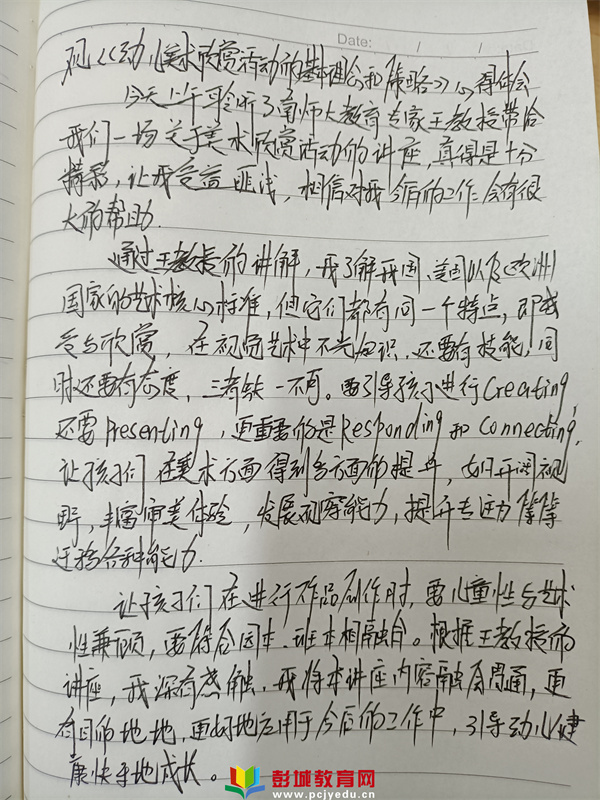 Date:
观《幼儿美术欣赏活动的基本理念和策略》心得体会
今天上午聆听了南师大教育专家王教授带给
我们一场关于美术欣赏活动的讲座，真得是十分
精彩，让我受益匪浅，相信对我今后的工作会有很
大的帮助.
通过王教授的讲解，我了解我国、美国以及欧洲
国家的艺术核心标准，但它们都有同一个特点，即感
受与欣赏，在视觉艺术中不光知识，还要有技能，同
时还要有态度，三者缺一不可。要引导孩子进行Creating,
还要Presenting，更重要的是Responding和Connecting,
让孩子们在美术方面得到多方面的提升，如开阔视
野，丰富审美体验，发展观察能力，提升专注力等等
迁移各种能力.
让孩子们在进行作品创作时，要儿童性与艺术
性兼顾，要结合园本、班本相融合。根据王教授的
讲座，我深有感触.我将本讲座内容融会贯通，更
有目的地，更好地应用于今后的工作中，引导幼儿健
康快乐地成长。
彭城教育网
www.pcjyedu.cn